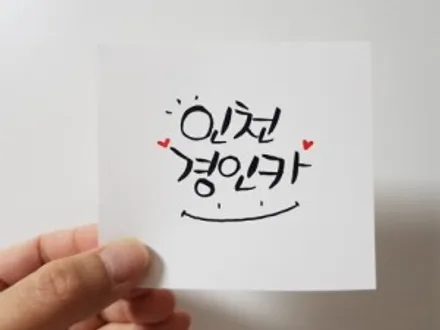 인천
경인카